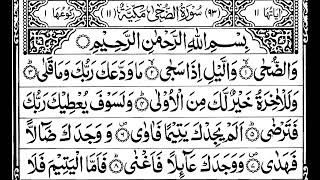 اٰیَاتُهَا ١١ (٩٣) سُوْرَةُ الضُّحٰى مَكِّيَّةٌ (١١) رُكُوْعُهَا ١
بِسْمِ اللهِ الرَّحْمٰنِ الرَّحِيْمِ
وَالضُّحٰى ۙ﴿١﴾ وَالَّيْلِ اِذَا سَجٰى ۙ﴿٢﴾ مَا وَدَّعَكَ رَبُّكَ وَمَا قَلٰى ؕ﴿٣﴾
وَلَلْاٰخِرَةُ خَيْرٌ لَّكَ مِنَ الْاُوْلٰى ؕ﴿٤﴾ وَلَسَوْفَ يُعْطِيْكَ رَبُّكَ
فَتَرْضٰى ؕ﴿٥﴾ اَلَمْ يَجِدْكَ يَتِيْمًا فَاٰوٰى ۪﴿٦﴾ وَوَجَدَكَ ضَآلًّا
فَهَدٰى ۪﴿٧﴾ وَوَجَدَكَ عَآئِلًا فَاَغْنٰى ؕ﴿٨﴾ فَاَمَّا الْيَتِيْمَ فَلَا